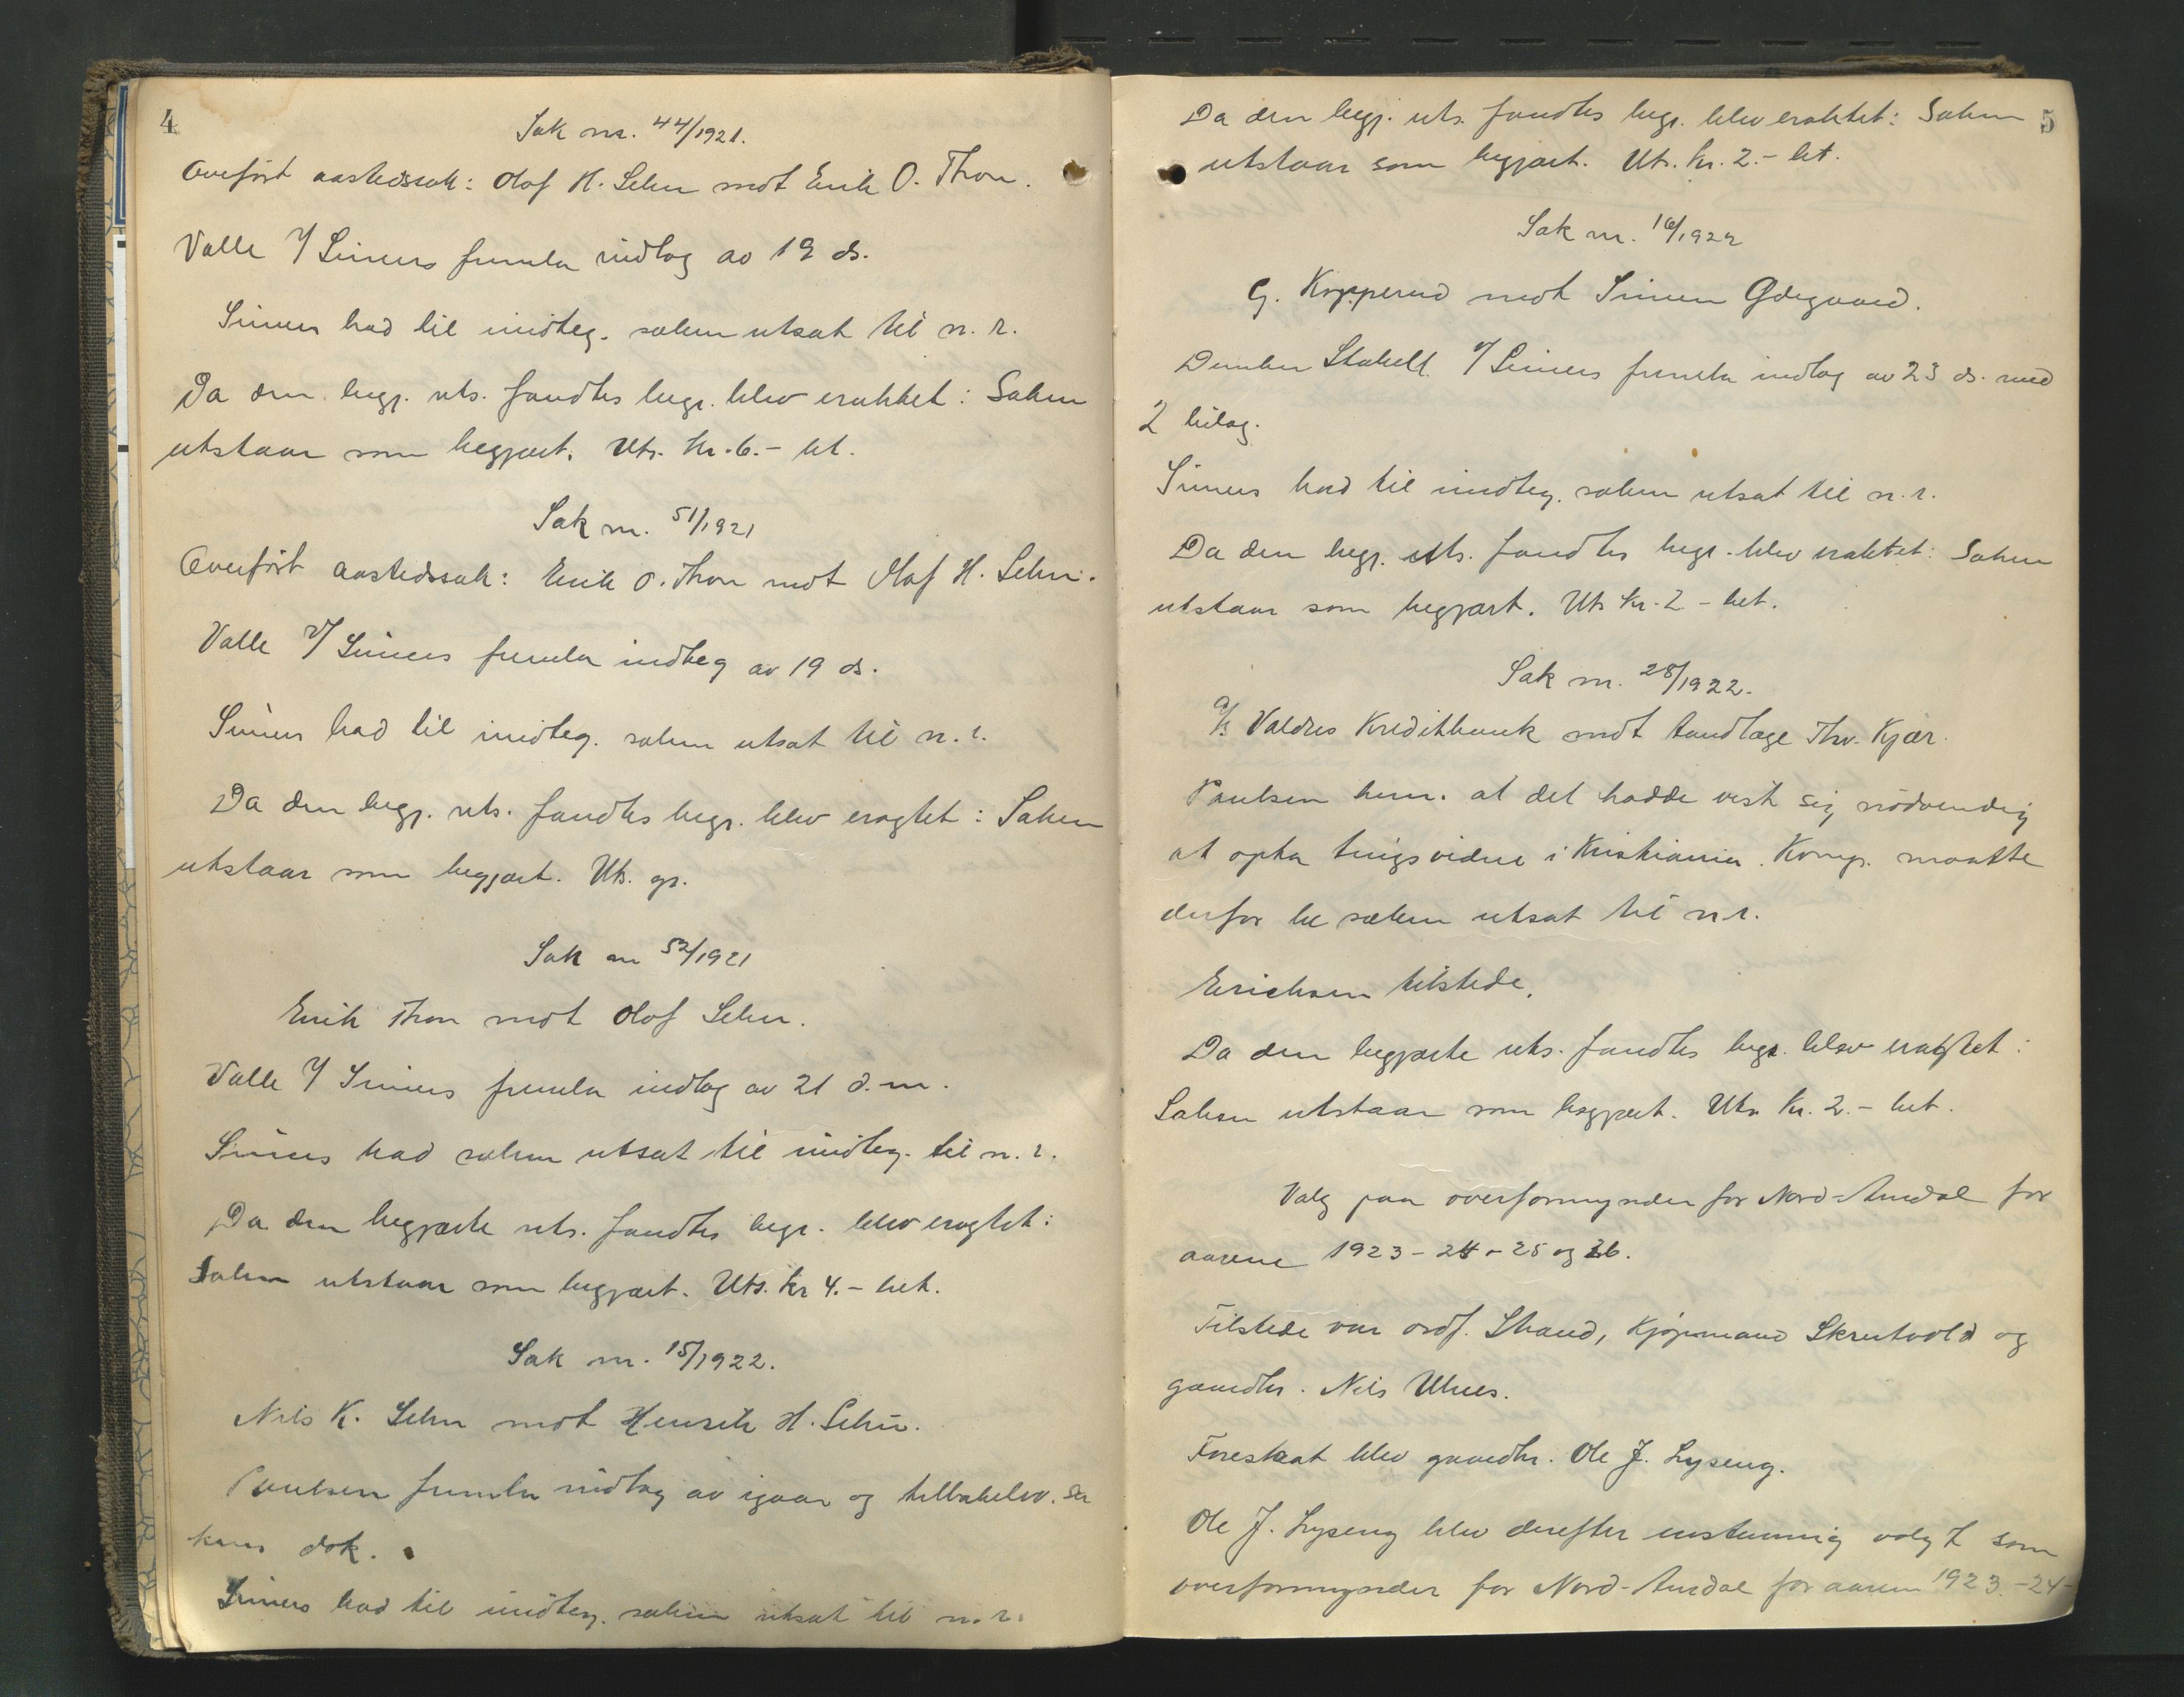 4
Sak nr. 44/1921.
Overført aastedssak: Olaf H. Sehn mot Erik O. Thon.
Valle f/ Simers fremla indlæg av 19 ds.
Simers bad til imøteg. saken utsat til n. r.
Da den begj. uts. fandtes begr. blev eraktet: Saken
utstaar som begjært. Uts. kr. 6.- bet.
Sak nr. 51/1921
Overført aastedssak: Erik O. Thon mot Olaf H. Sehn.
Valle f/ Simers fremla indlæg av 19 ds.
Simers bad til imøteg. saken utsat til n. r.
Da den begj. uts. fandtes begr. blev eragtet: Saken
utstaar som begjært. Uts. gr.
Sak nr 52/1921
Erik Thon mot Olof Sehn.
Valle f/ Simers fremla indlæg av 21 d.m.
Simers bad saken utsat til imøteg. til n. r.
Da den begjærte uts. fandtes begr. blev eragtet:
Saken utstaar som begjært. Uts. kr 4.- bet.
Sak nr. 15/1922.
Nils K. Sehn mot Henrik H. Sehn.
Paulsen fremla indlæg av igaar og tilbakelev. de
kans dok.
Simers bad til imøteg. saken utsat til n. r.
Da den begj. uts. fandtes begr. blev eraktet: Saken
5
utstaar som begjært. Uts. kr. 2.- bet.
Sak nr. 16/1922
G. Kopperud mot Simen Ødegaard.
Stabell f/ Simers fremla indlæg av 23 ds. med
2 bilag.
Simers bad til imøteg. saken utsat til n. r.
Da den begj. uts. fandtes begr. blev eraktet: Saken
utstaar som begjært. Uts kr. 2 - bet.
Sak nr. 28/1922.
A/s Valdres Kreditbank mot tandlæge Thv. Kjær.
Paulsen bem. at det hadde vist sig nødvendig
at opta tingsvidne i Kristiania. Komp. maatte
derfor be saken utsat til n. r.
Erichsen tilstede.
Da den begjærte uts. fandtes begr. blev eragtet:
Saken utstaar som begjært. Uts. kr. 2.- bet.
Valg paa overformynder for Nord-Aurdal for
aarene 1923 - 24 - 25 og 26.
Tilstede var ordf. Strand, Kjøpmand Skrutvold og
gaardbr. Nils Ulnes.
Foreslaat blev gaardbr. Ole J. Lyseng.
Ole J. Lyseng blev derefter enstemmig valgt som
overformynder for Nord-Aurdal for aarene 1923 - 24 -